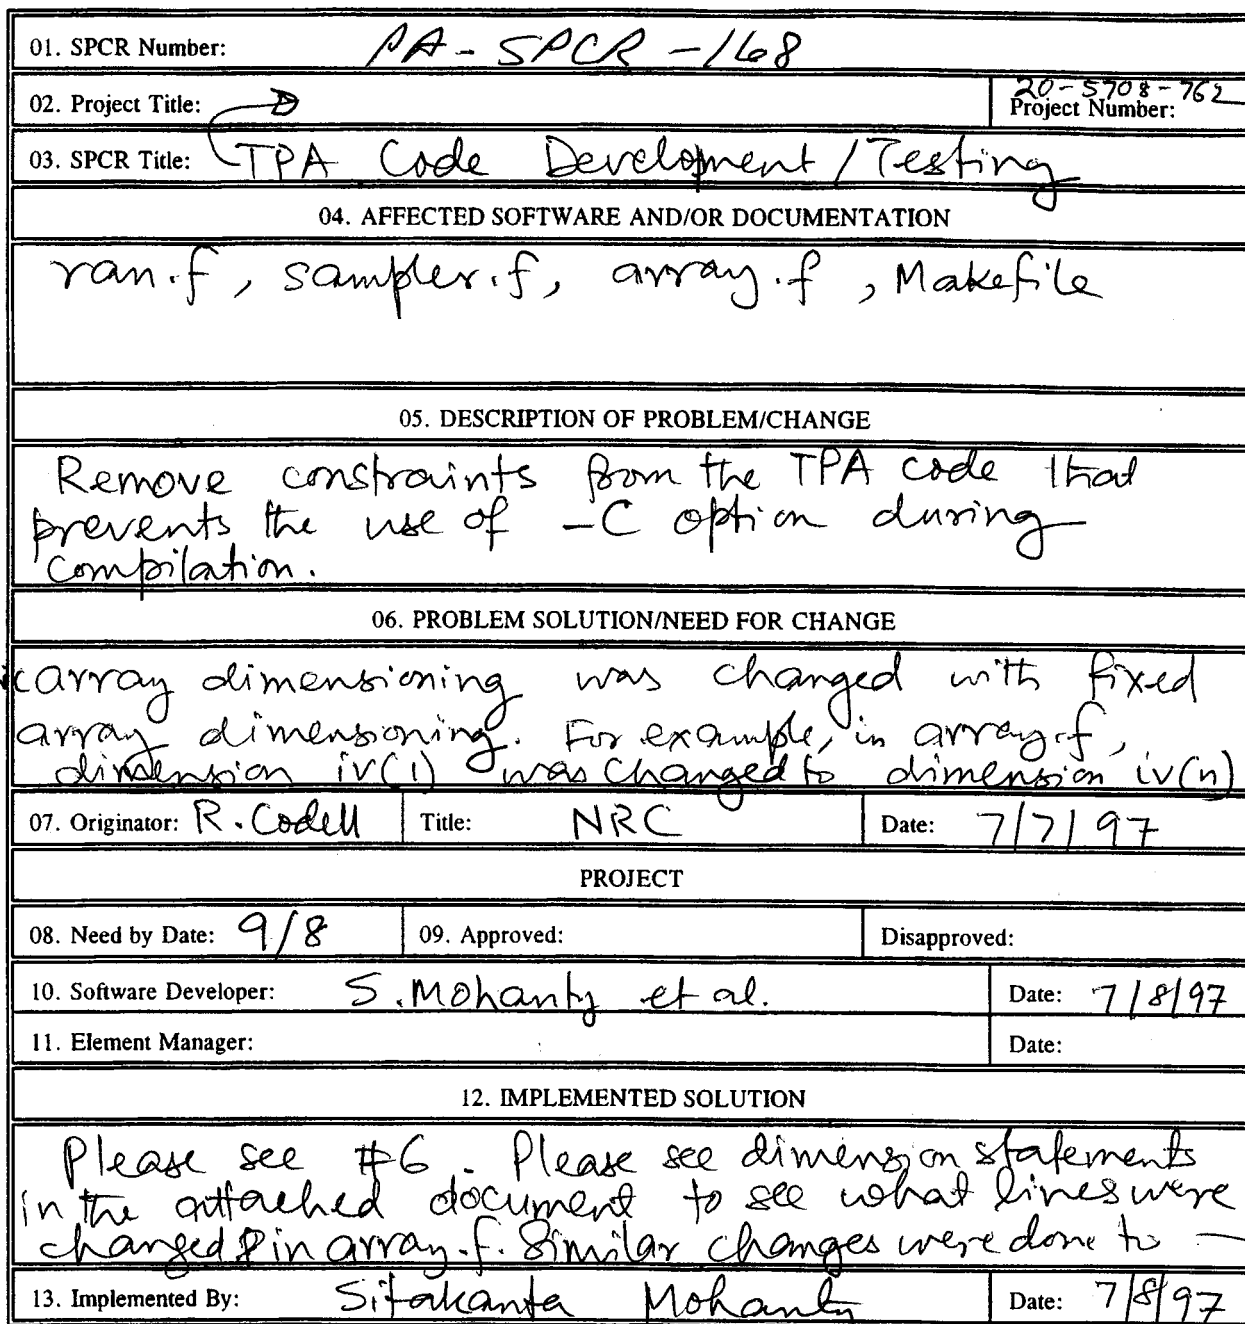 01. SPCR Number: PA-SPCR-168
02. Project Title:
20-5708-762
Project Number:
03. SPCR Title: TPA Code Development/Testing
04. AFFECTED SOFTWARE AND/OR DOCUMENTATION
ran.f, sampler.f, array.f, Makefile
05. DESCRIPTION OF PROBLEM/CHANGE
Remove constraints from the TPA code that
prevents the use of -C option during
compilation.
06. PROBLEM SOLUTION/NEED FOR CHANGE
array dimensioning was changed with fixed
array dimensioning. For example, in array.f,
dimension iv(1) was changed to dimension iv(n)
07. Originator: R. Codell Title: NRC Date: 7/7/97
PROJECT
08. Need by Date: 9/8 09. Approved: Disapproved:
10. Software Developer: S. Mohanty et al. Date: 7/8/97
11. Element Manager: Date:
12. IMPLEMENTED SOLUTION
Please see #6. Please see dimension statements
in the attached document to see what lines were
changed in array.f. Similar changes were done to —
13. Implemented By: Sitakanta Mohanty Date: 7/8/97